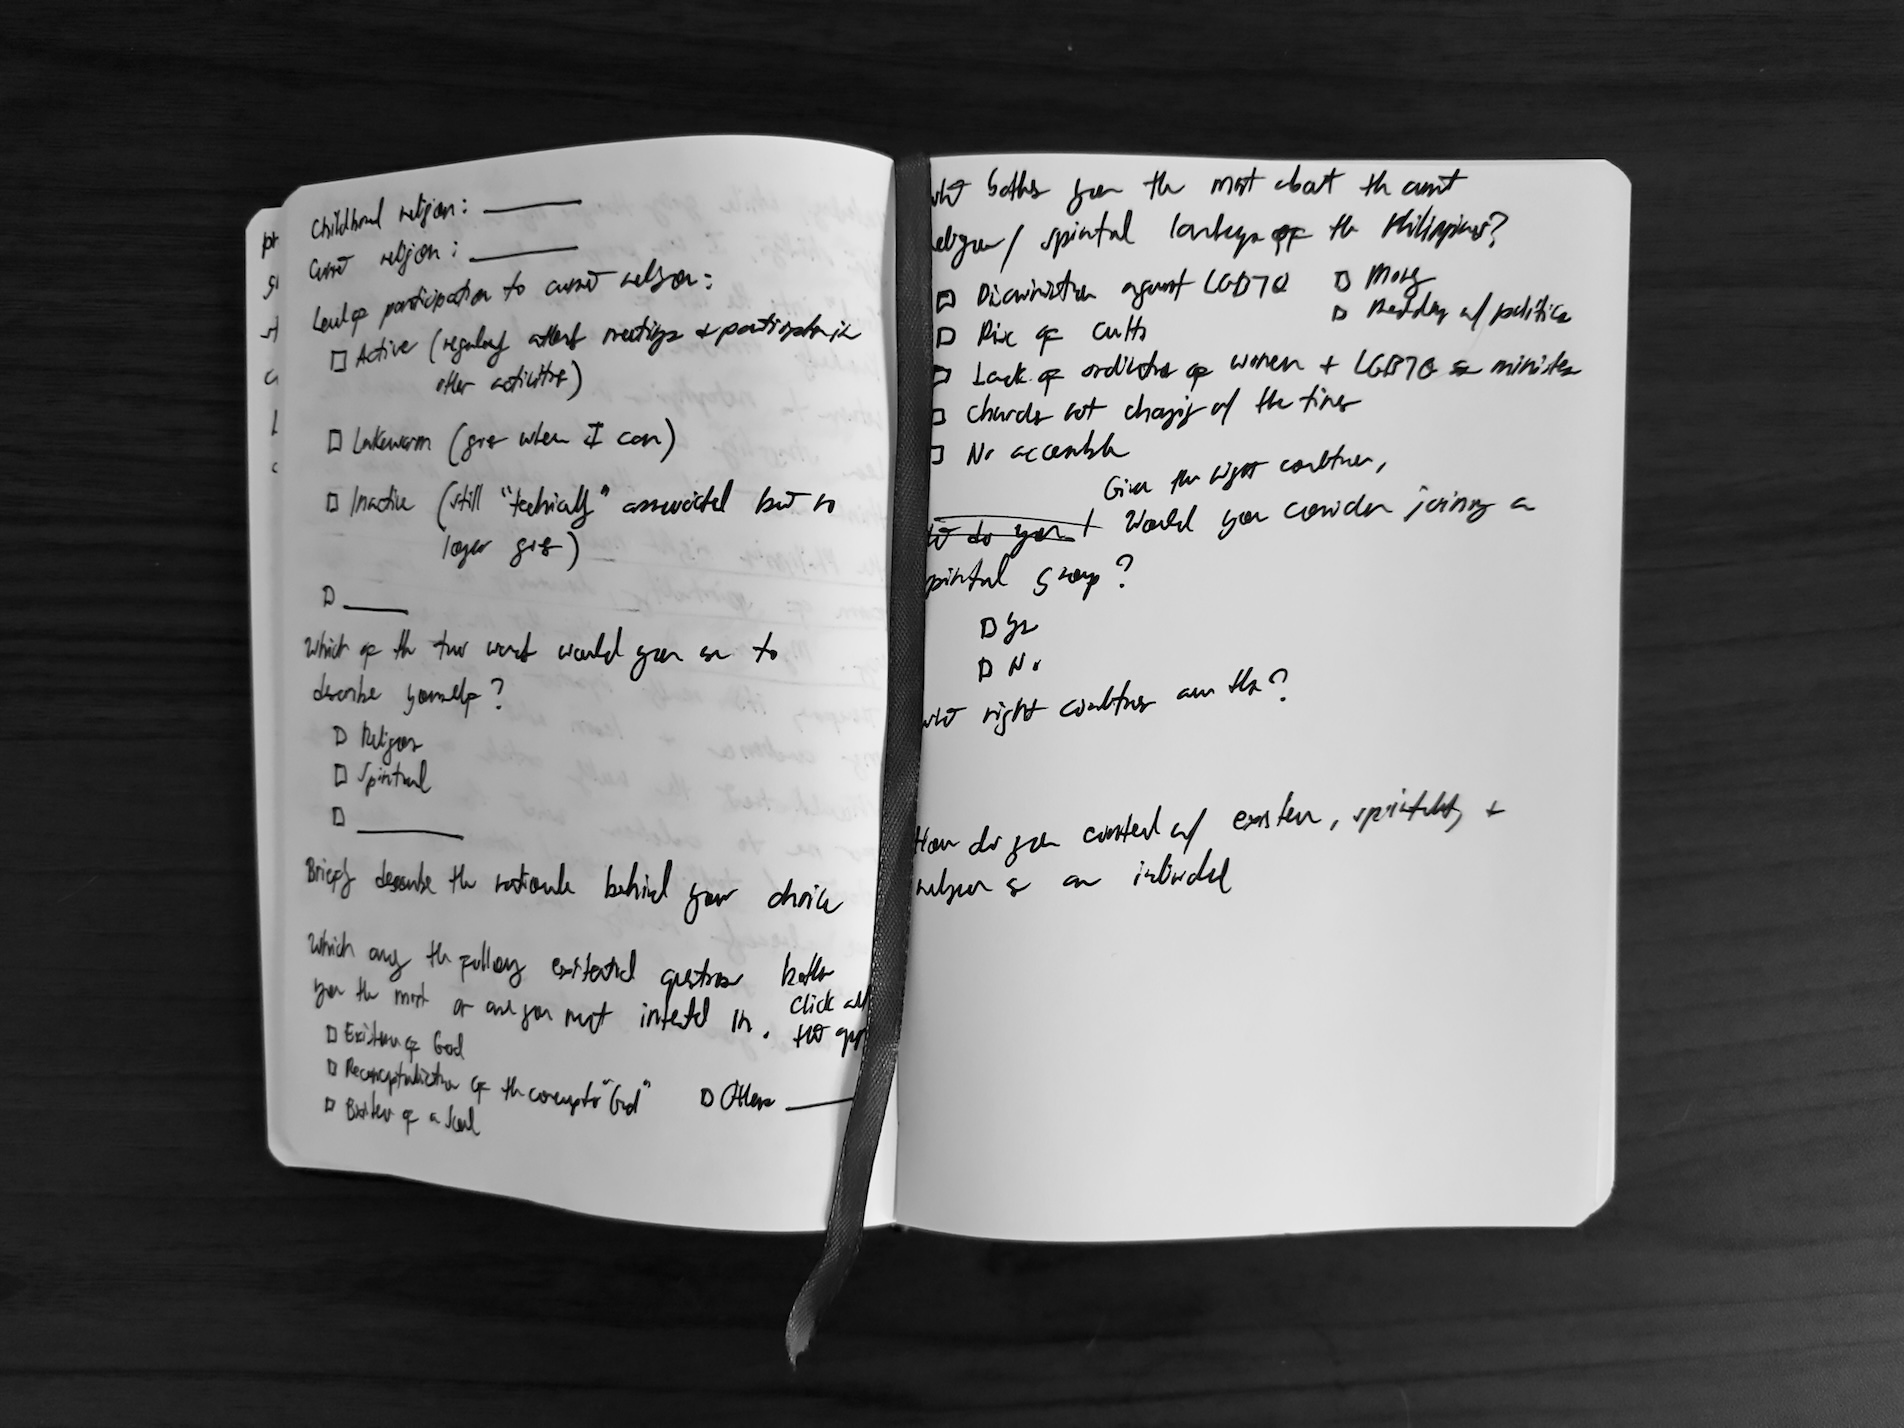 Childhood religion: ____
Current religion: ____
Level of participation to current religion:
□ Active (regularly attend meetings + participate in
other activities)
□ Lukewarm (goes when I can)
□ Inactive (still "technically" associated but no
longer goes)
□ ____
Which of the two words would you use to
describe yourself?
□ Religious
□ Spiritual
□ ____
Briefly describe the rationale behind your choice
Which among the following existential questions bother
you the most or are you most interested in. click all
that
□ Existence of God
□ Reconceptualization of the concept of "God"
□ Others ____
□ Existence of a soul
What bothers you the most about the current
religious/ spiritual landscape of the Philippines?
□ Discrimination against LGBTQ
□ Money
□ Meddling w/ politics
□ Rise of cults
□ Lack of ordination of women + LGBTQ as ministers
□ Churches not changing w/ the times
□ No accessible
Given the right conditions,
What do you
Would you consider joining a
spiritual group?
□ Yes
□ No
What right conditions are these?
How do you contend w/ existence, spirituality, +
religion as an individual